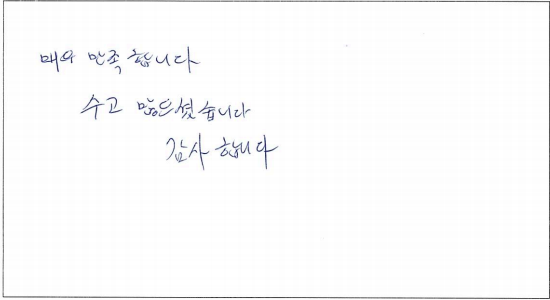 매우 만족합니다
수고 많으셨습니다
감사합니다